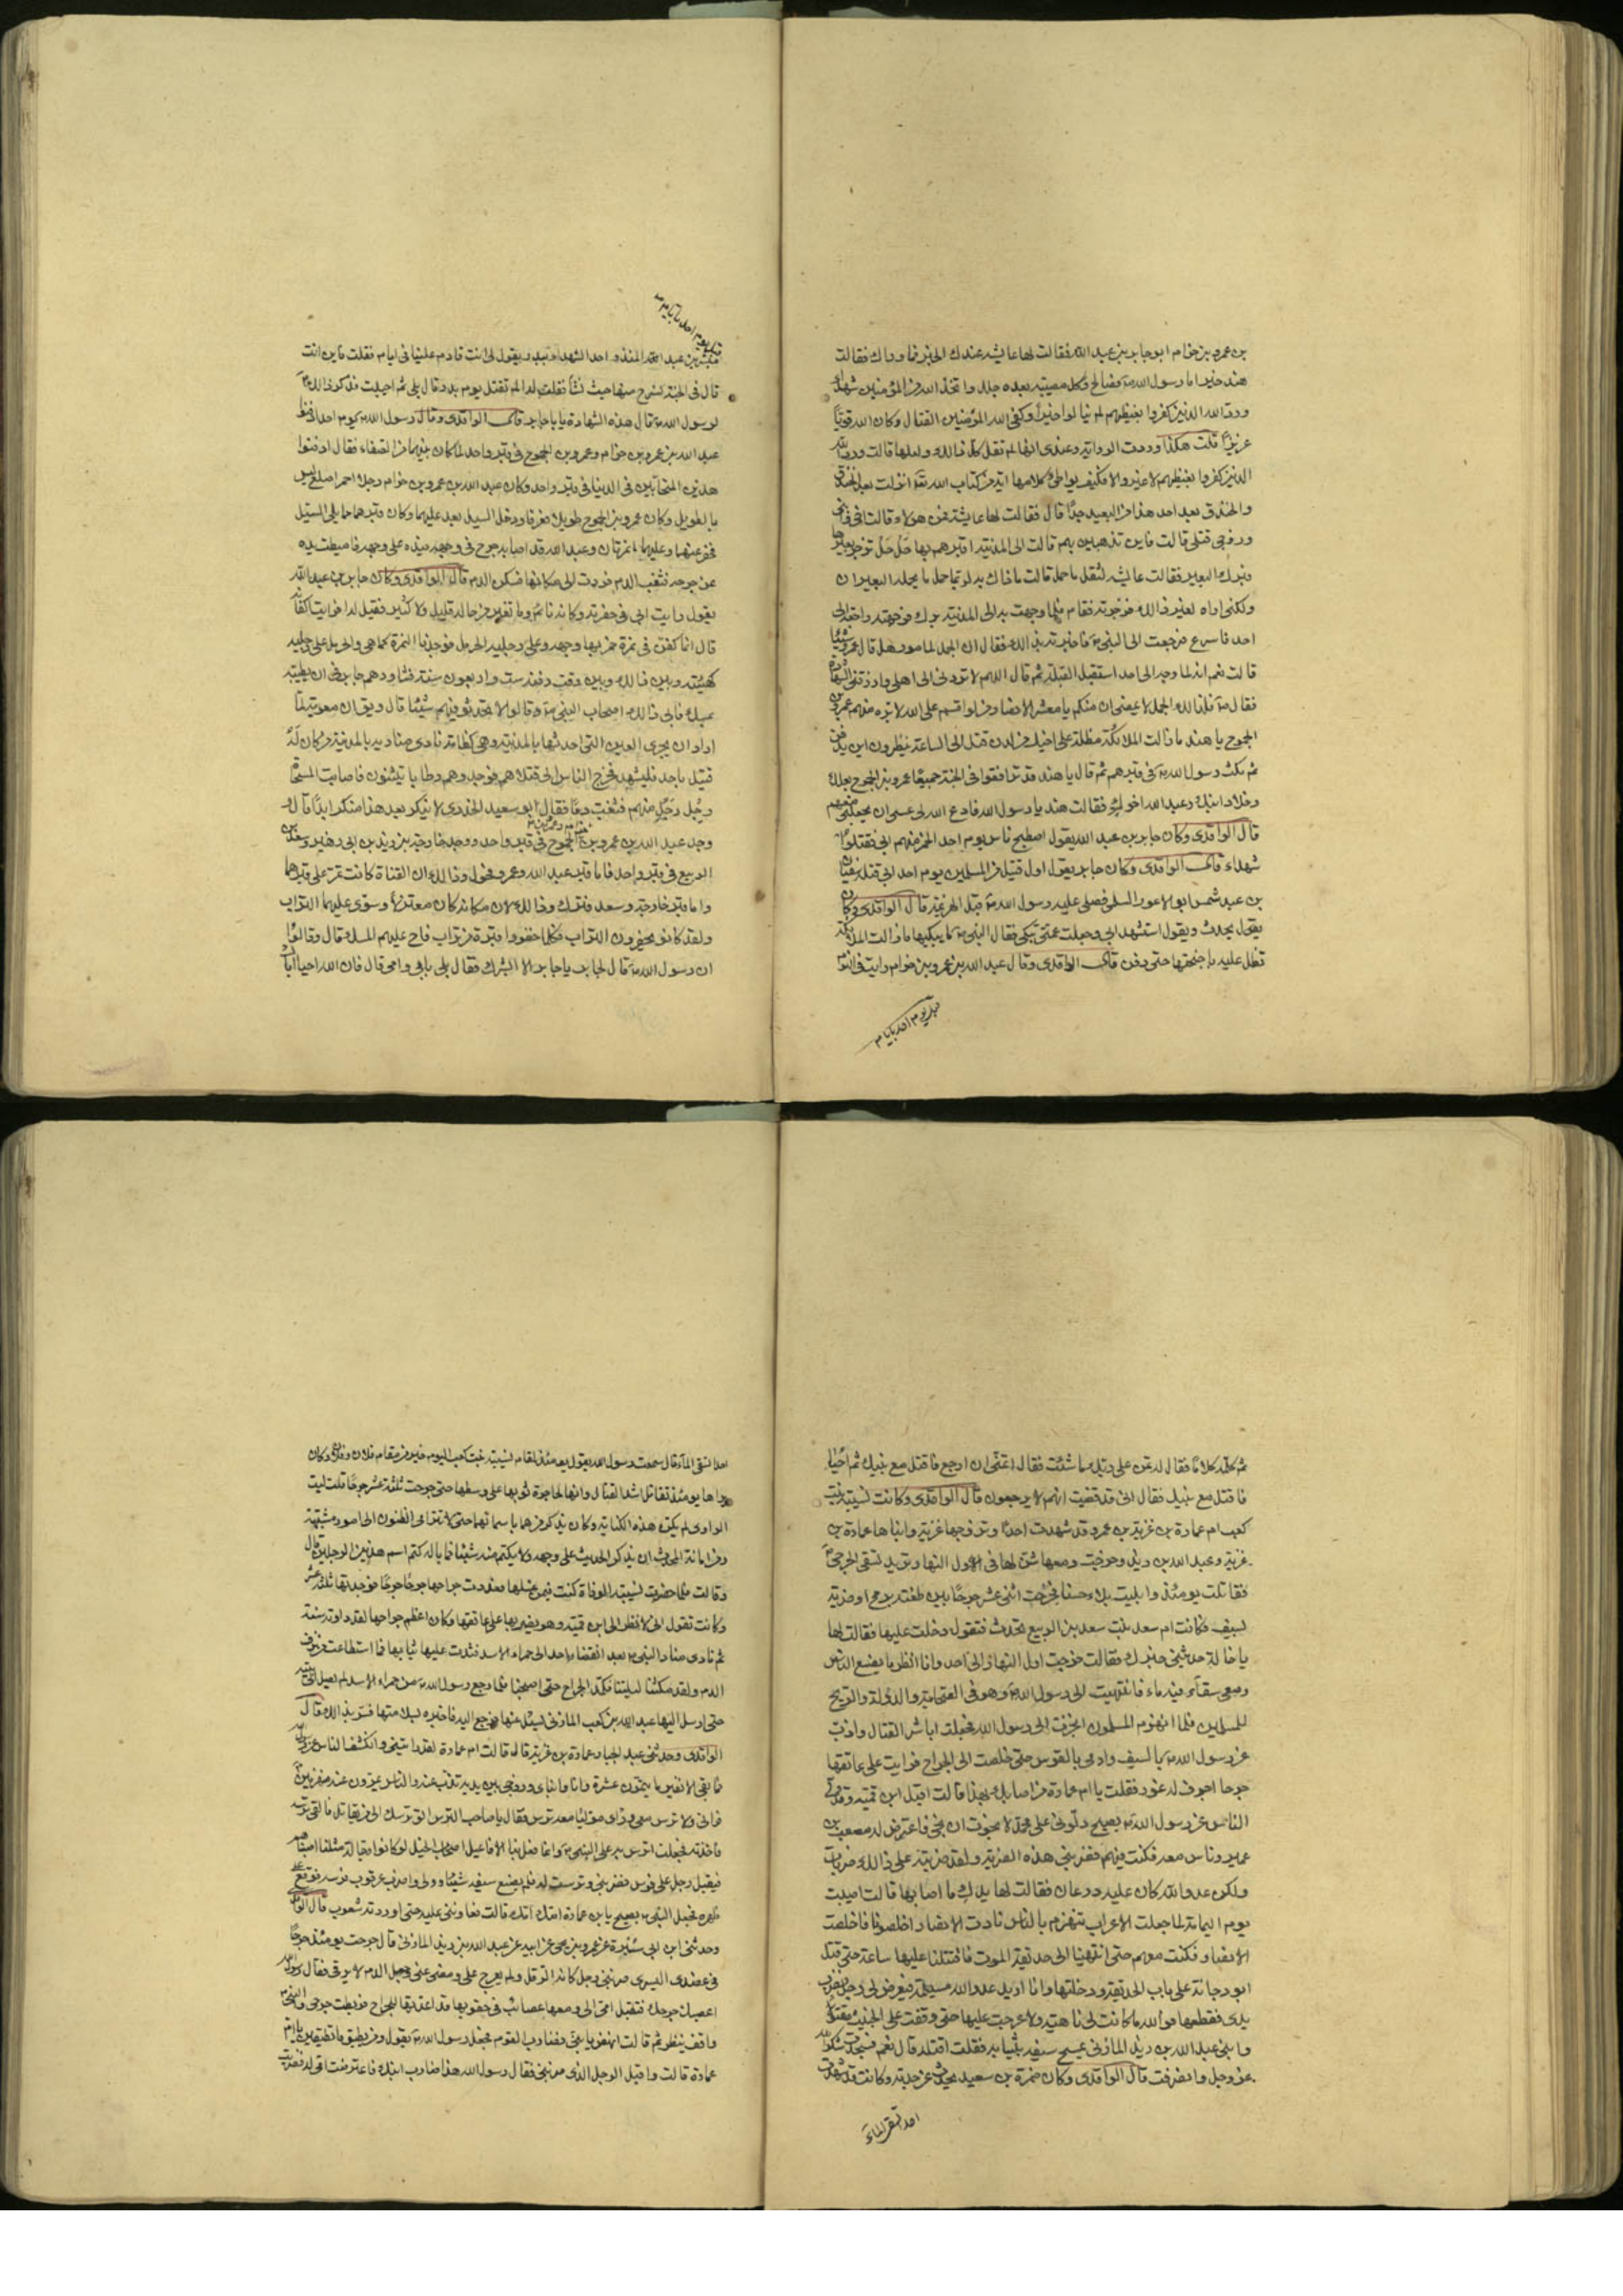 بن عمرو بن حزام ابو جابر بن عبد الله فقالت لها عايشه عندك الخبر فما وراك فقالت
هند خيرا اما رسول الله ص فصالح وكل مصيبة بعده جلل واتخذ الله من المؤمنين شهداء
ورد الله الذين كفروا بغيظهم لم ينالوا خيرا وكفى الله المؤمنين القتال وكان الله قويا
عزيزا قلت هكذا وردت الرواية وعندى انها لم تقل كل ذالك ولعلها قالت ورد الله
الذين كفروا بغيظهم لا غير والا فكيف يواطئ كلامها آية من كتاب الله تعالى انزلت بعد الخندق
والخندق بعد احد هذا من البعيد جدا قال فقالت لها عايشة فمن هولاء قالت اخى وابنى
وزوجى قتلى قالت فاين تذهبين بهم قالت الى المدينة اقبرهم بها حل حل تزجر بعيرها
فبرك البعير فقالت عايشه لثقل ما حمل قالت ما ذاك به لربما حمل ما يحمله البعيران
ولكنى اراه لغير ذالك فزجرته فقام فلما وجهت به الى المدينة برك فوجهته راجعة الى
احد فاسرع فرجعت الى النبى ص فاخبرته بذالك فقال ان الجمل لمامور هل قال عمرو شيئا
قالت نعم انه لما وجه الى احد استقبل القبلة ثم قال اللهم لا تردنى الى اهلى وارزقنى الشهادة
فقال ص فلذالك الجمل لا يمضى ان منكم يا معشر الانصار من لو اقسم على الله لابره منهم عمرو بن
الجموح يا هند ما زالت الملائكة مظلة على اخيك من لدن قتل الى الساعة ينظرون اين يدفن
ثم مكث رسول الله ص فى قبرهم ثم قال يا هند قد ترافقوا فى الجنة جميعا عمرو بن الجموح بعلك
وخلاد ابنك وعبد الله اخوك فقالت هند يا رسول الله فادع الله لى عسى ان يجعلنى معهم
قال الواقدى وكان جابر بن عبد الله يقول اصطبح ناس يوم احد الخمر منهم ابى فقتلوا
شهداء قال الواقدى وكان جابر يقول اول قتيل من المسلمين يوم احد ابى قتله سفيان
بن عبد شمس ابو الاعور السلمى فصلى عليه رسول الله ص قبل الهزيمة قال الواقدى وكان
يقول يحدث ويقول استشهد ابى وجعلت عمتى تبكى فقال النبى ص ما يبكيها ما زالت الملائكة
تظل عليه باجنحتها حتى دفن قال الواقدى وقال عبد الله بن عمرو بن حزام رايت فى النوم
قبل يوم احد بايام
قبل يوم احد بايام
مبشر بن عبد المنذر احد الشهداء ببدر ويقول لى انت قادم علينا فى ايام فقلت فاين انت
قال فى الجنة نسرح منها حيث نشأ فقلت له الم تقتل يوم بدر قال بلى ثم احييت فذكر ذالك
لرسول الله ص قال هذه الشهادة يا با جابر قال الواقدى وقال رسول الله ص يوم احد ادفنوا
عبد الله بن عمرو بن حزام وعمرو بن الجموح فى قبر واحد لما كان بينهما من الصفاء فقال ادفنوا
هذين المتحابين فى الدنيا فى قبر واحد وكان عبد الله بن عمرو بن حزام رجلا احمر اصلع ليس
بالطويل وكان عمرو بن الجموح طويلا فعرفا ودخل السيل بعد عليهما وكان قبرهما مما يلى السيل
فحفر عنهما وعليهما نمرتان وعبد الله قد اصابه جرح فى وجهه فيده على وجهه فاميطت يده
عن جرحه فثعب الدم فردت الى مكانها فسكن الدم قال الواقدى وكان جابر بن عبد الله
يقول رايت ابى فى حفرته وكانه نائم وما تغير من حاله قليل ولا كثير فقيل له افرايت اكفانه
قال انما كفن فى نمرة خمر بها وجهه وعلى رجليه الحرمل فوجدنا النمرة كما هى والحرمل على رجليه
كهيئته وبين ذالك وبين وقت دفنه ست واربعون سنة فشاورهم جابر فى ان يطيبه
بمسك فابى ذالك اصحاب النبى ص وقالوا لا تحدثوا فيهم شيئا قال ويق ان معوية لما
اراد ان يجرى العين التى احدثها بالمدينة وهى كظامة نادى مناديه بالمدينة من كان له
قتيل باحد فليشهد فخرج الناس الى قتلاهم فوجدوهم رطابا يتثنون فاصابت المسحاة
رجل رجل منهم فثعبت دما فقال ابو سعيد الخدرى لا ينكر بعد هذا منكر ابدا قال و
وجد عبد الله بن عمرو بن حزام وعمرو بن الجموح فى قبر واحد ووجد خارجة بن زيد بن ابى زهير وسعد بن
الربيع فى قبر واحد فاما قبر عبد الله وعمرو فحول وذالك ان القناة كانت تمر على قبرهما
واما قبر خارجة وسعد فترك وذالك لان مكانه كان معتزلا وسوى عليهما التراب
ولقد كانوا يحفرون التراب فكلما حفروا قترة من تراب فاح عليهم المسك قال وقالوا
ان رسول الله ص قال لجابر يا جابر الا ابشرك فقال بلى بابى وامى قال فان الله احيا اباك
ثم كلمه كلاما فقال له تمن على ربك ما شئت فقال اتمنى ان ارجع فاقتل مع نبيك ثم احيا
فاقتل مع نبيك فقال انى قد قضيت انهم لا يرجعون قال الواقدى وكانت نسيبة بنت
كعب ام عمارة بن غزية بن عمرو قد شهدت احدا وزوجها غزية وابناها عمارة بن
غزية وعبد الله بن زيد وخرجت ومعها شن لها فى الاول النهار تريد تسقى الجرحى
فقاتلت يومئذ وابليت بلاء حسنا فجرحت اثنى عشر جرحا بين طعنة برمح او ضربة
بسيف فكانت ام سعد بنت سعد بن الربيع تحدث فتقول دخلت عليها فقالت لها
يا خالة حدثينى خبرك فقالت خرجت اول النهار الى احد وانا انظر ما يصنع الناس
ومعى سقاء فيه ماء فانتهيت الى رسول الله ص وهو فى الصحابة والدولة والريح
للمسلمين فلما انهزم المسلمون انحزت الى رسول الله فجعلت اباشر القتال واذب
عن رسول الله ص بالسيف وارمى بالقوس حتى خلصت الى الجراح فرايت على عاتقها
جرحا اجوف له غور فقلت يا ام عمارة من اصابك بهذا قالت اقبل ابن قمية وقد ولى
الناس عن رسول الله ص يصيح دلونى على محمد لا نجوت ان نجى فاعترض له مصعب بن
عمير وناس معه فكنت فيهم فضربنى هذه الضربة ولقد ضربته على ذالك ضربات
ولكن عدو الله كان عليه درعان فقالت لها يدك ما اصابها قالت اصيبت
يوم اليمامة لما جعلت الاعراب تنهزم بالناس نادت الانصار اخلصونا فاخلصت
الانصار فكنت معهم حتى انتهينا الى حديقة الموت فاقتتلنا عليها ساعة حتى قتل
ابو دجانة على باب الحديقة ودخلتها وانا اريد عدو الله مسيلمة فيعرض لى رجل فضرب
يدى فقطعها فوالله ما كانت لى ناهية ولا عرجت عليها حتى وقفت على الخبيث مقتولا
وابنى عبد الله بن زيد المازنى يمسح سيفه بثيابه فقلت اقتلته قال نعم فسجدت شكرا لله
عز وجل وانصرفت قال الواقدى وكان ضمرة بن سعيد يحدث عن جدته وكانت قد شهدت
احد تسقى الماء
احد تسقى الماء قال سمعت رسول الله يقول يومئذ لمقام نسيبة بنت كعب اليوم خير من مقام فلان وفلان وكان
يراها يومئذ تقاتل اشد القتال وانها لحاجزة ثوبها على وسطها حتى جرحت ثلثة عشر جرحا قلت ليت
الراوى لم يكن هذه الكناية وكان يذكر من هما باسمائهما حتى لا تترامى الظنون الى امور مشتبهة
ومن امانة المحدث ان يذكر الحديث على وجهه ولا يكتم منه شيئا فما باله كتم اسم هذين الرجلين قال
وقالت فلما حضرت نسيبة الوفاة كنت فيمن غسلها فعددت جراحها جرحا جرحا فوجدتها ثلثة عشر
وكانت تقول انى لانظر الى ابن قمية وهو يضربها على عاتقها وكان اعظم جراحها لقد داوته سنة
ثم نادى منادى النبى ص بعد انقضاء احد الى حمراء الاسد فشدت عليها ثيابها فما استطاعت من نزف
الدم ولقد مكثنا ليلتنا نكمد الجراح حتى اصبحنا فلما رجع رسول الله ص من حمراء الاسد لم يصل الى بيته
حتى ارسل اليها عبد الله بن كعب المازنى يسئل عنها فرجع اليه فاخبره بسلامتها فسر بذالك قال
الواقدى وحدثنى عبد الجبار عمارة بن غزية قال قالت ام عمارة لقد رايتنى وانكشف الناس عن رسول الله
فما بقى الا نفير ما يتمون عشرة وانا وابناى وزوجى بين يديه نذب عنه والناس يمرون عنه منهزمين
فرانى ولا ترس معى وراى موليا معه ترس فقال يا صاحب الترس الق ترسك الى من يقاتل فالقى ترسه
فاخذته فجعلت اترس به على النبى ص وانما فعل بنا الافاعيل اصحاب الخيل لو كانوا رجالة مثلنا اصبناهم
فيقبل رجل على فرس فضربنى وترست له فلم يصنع سيفه شيئا وولى واضرب عرقوب فرسه فوقع على
ظهره فجعل النبى ص يصيح يا بن عمارة امك امك قالت فعاوننى عليه حتى اوردته شعوب قال الواقدى
وحدثنى ابن ابى سبرة عن عمرو بن يحيى عن ابيه عن عبد الله بن زيد المازنى قال جرحت يومئذ جرحا
فى عضدى اليسرى ضربنى رجل كانه الرقل ولم يعرج على ومضى عنى وجعل الدم لا يرقى فقال رسول الله
اعصب جرحك فتقبل امى الى ومعها عصائب فى حقويها قد اعدتها للجراح فربطت جرحى والنبى ص
واقف ينظر ثم قالت انهض يا بنى فضارب القوم فجعل رسول الله ص يقول ومن يطيق ما تطيقين يا ام
عمارة قالت واقبل الرجل الذى ضربنى فقال رسول الله هذا ضارب ابنك فاعترضت اقى له فضربت